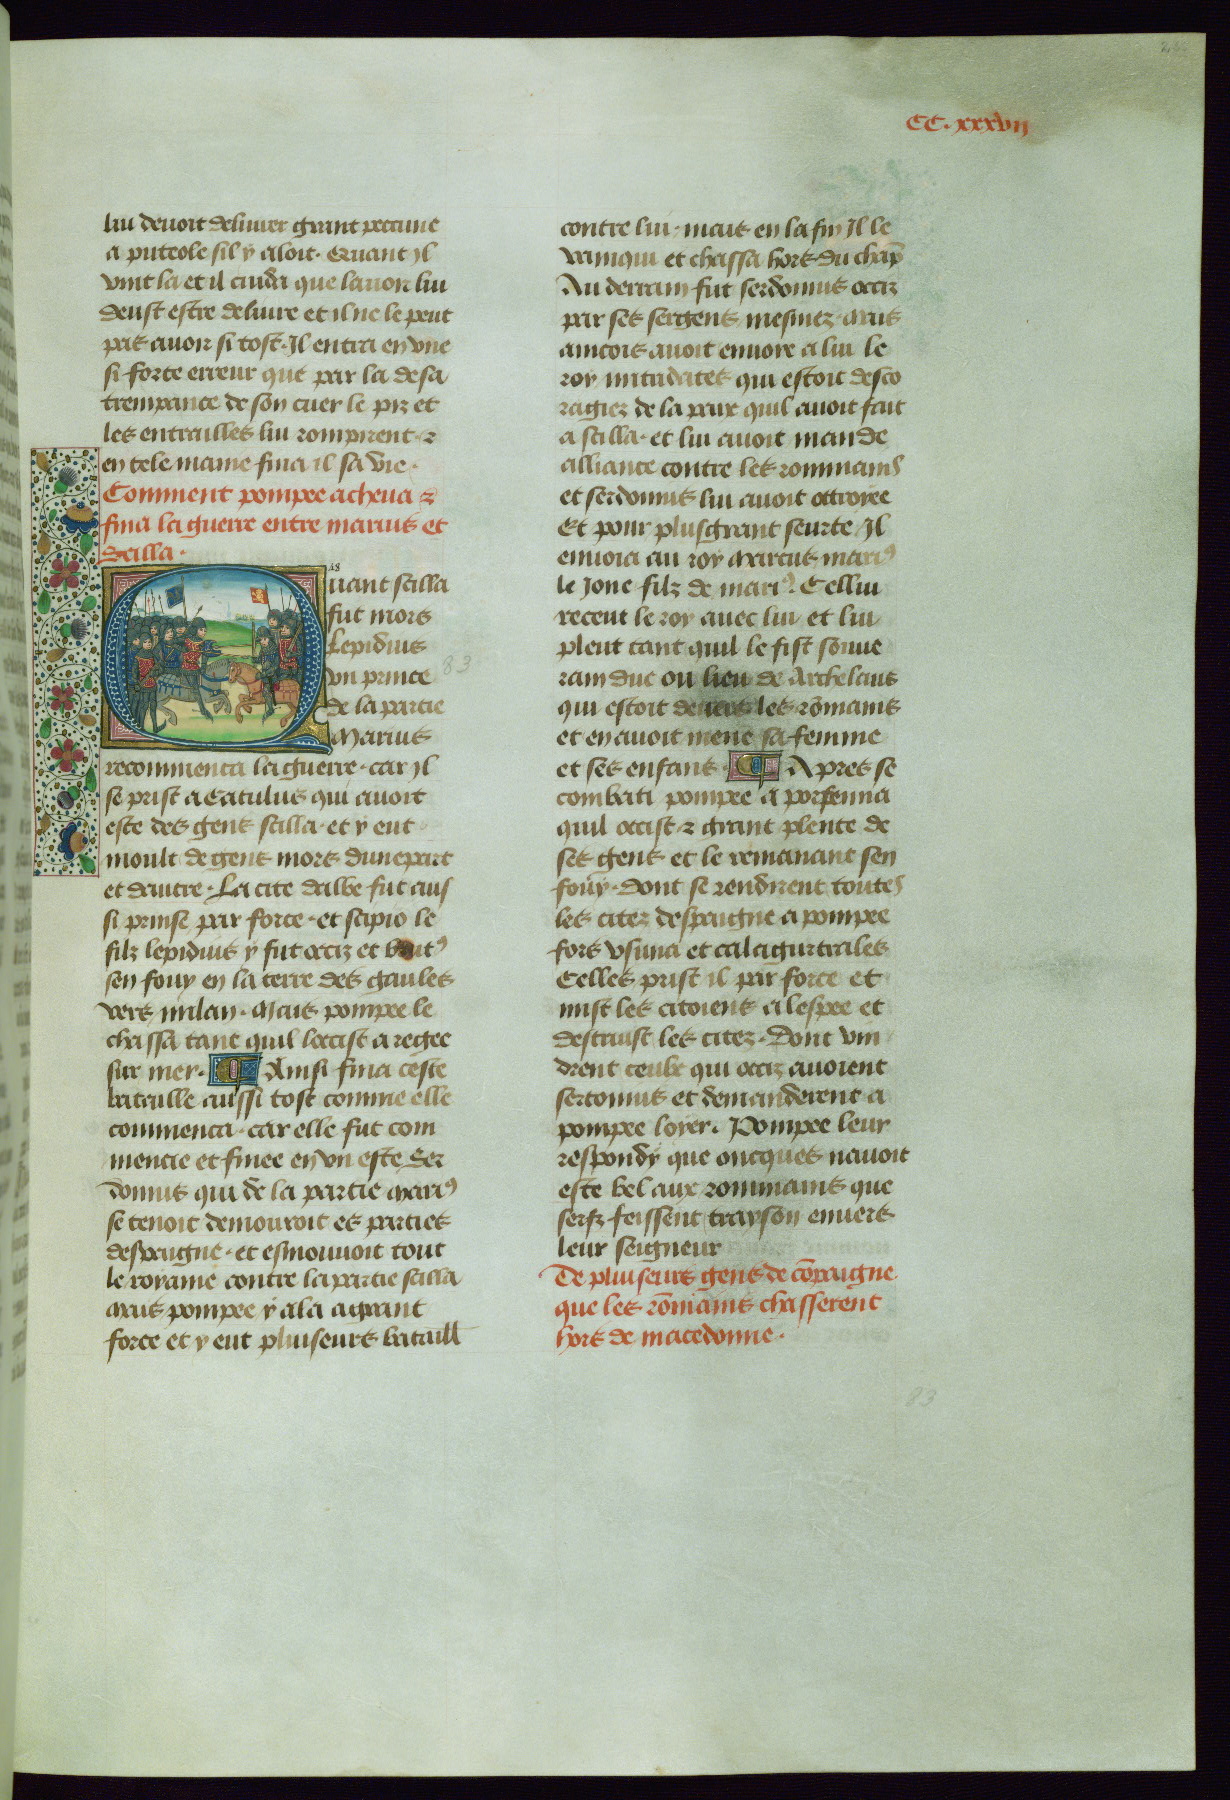 CC. xxxvii
lui deuoit deliurer grant peccune
a puteole sil y aloit. Quant Il
vint la et il cuida que lauoir lui
deust estre deliure et il ne le peut
pas auoir si tost. Il entra en vne
si forte erreur que par la desa
trempance de son cuer le piz et
les entrailles lui rompirent. 
en tele maniere fina il sa vie.
Comment pompee acheua 
fina la guerre entre marius et
Scilla.
Quant scilla
fut mors
Lepidius
vn prince
de la partie
Marius
recommenca la guerre. car Il
se prist a Catulus qui auoit
este des gens scilla. et y eut
moult de gens mors dune part
et dautre. La cite dalbe fut aus
si prinse par force. et scipio le
filz lepidius y fut occiz et
sen fouy en la terre des gaules
vers milan. Mais pompee le
chassa tant quil loccist a regee
sur mer. Ainsi fina ceste
bataille aussi tost comme elle
commenca. car elle fut com
mencie et finee en vn este Ser
donius qui de la partie mari9
se tenoit demouroit es parties
despaigne. et esmouuoit tout
le royame contre la partie scilla
Mais pompee y ala a grant
force et y eut pluiseurs bataill
contre lui. mais en la fin Il le
vainqui et chassa hors du chap
Au derrain fut serdonius occiz
par ses sergens mesmez. Mais
aincois auoit enuoie a lui le
roy mitridates qui estoit desco
ragiez de la paix quil auoit fait
a scilla. et lui auoit mande
alliance contre les rommains
et serdonius lui auoit ottroyee
Et pour plus grant seurte Il
enuoia au roy Marcus mari9
le Jone filz de mari9. Cellui
receut le roy auec lui et lui
pleut tant quil le fist souue
rain duc ou lieu de Archelaus
qui estoit deuers les romains
et en auoit mene sa femme
et ses enfans. Apres se
combati pompee a porsenna
quil occist grant plente de
ses gens et le remanant sen
fouy. dont se rendirent toutes
les citez despaigne a pompee
fors vsuna et calagurtailes
Celles prist il par force et
mist les citoiens a lespee et
destruist les citez. Dont vin
drent ceulx qui occiz auoient
sertonius et demanderent a
pompee loyer. Pompee leur
respondy que oncques nauoit
este bel aux rommains que
serfz feissent trayson enuers
leur seigneur
De pluiseurs gens de copaigne
que les romains chasserent
hors de macedonne.
83
83